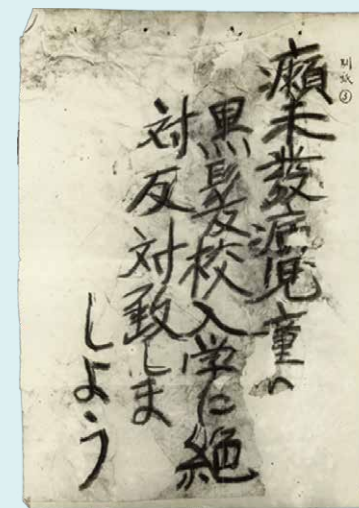 別紙③
癩未發病児童の
黒髪校入学に絶
対反対致しま
しよう